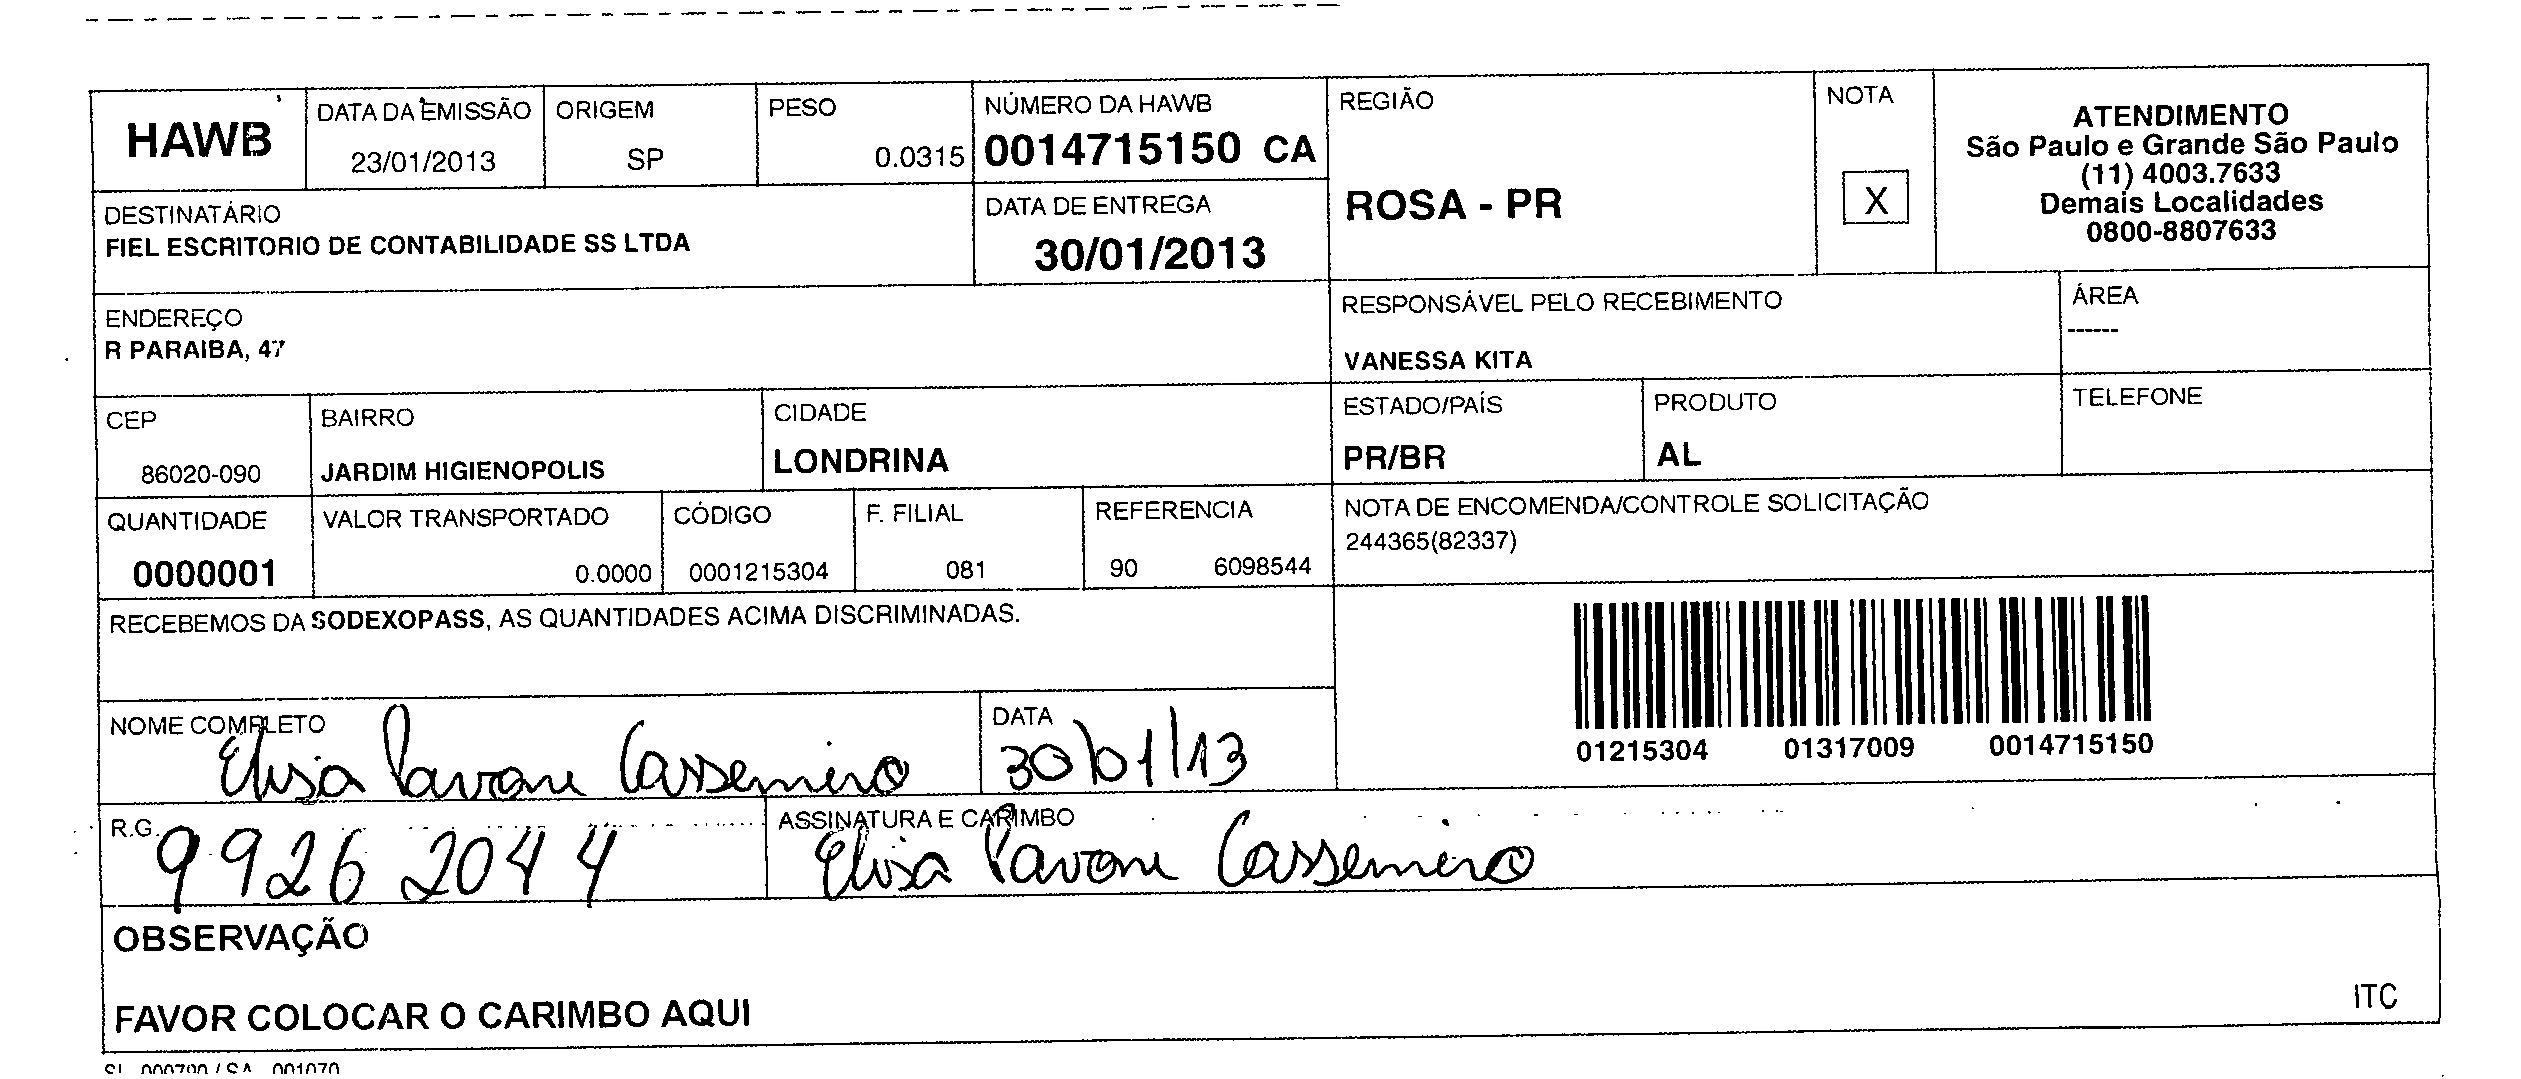 HAWB
DATA DA EMISSÃO
23/01/2013
ORIGEM
SP
PESO
0.0315
NÚMERO DA HAWB
0014715150 CA
REGIÃO
ROSA - PR
NOTA
X
ATENDIMENTO
São Paulo e Grande São Paulo
(11) 4003.7633
Demais Localidades
0800-8807633
DESTINATÁRIO
FIEL ESCRITORIO DE CONTABILIDADE SS LTDA
DATA DE ENTREGA
30/01/2013
ENDEREÇO
R PARAIBA, 47
RESPONSÁVEL PELO RECEBIMENTO
VANESSA KITA
ÁREA
------
CEP
86020-090
BAIRRO
JARDIM HIGIENOPOLIS
CIDADE
LONDRINA
ESTADO/PAÍS
PR/BR
PRODUTO
AL
TELEFONE
QUANTIDADE
0000001
VALOR TRANSPORTADO
0.0000
CÓDIGO
0001215304
F. FILIAL
081
REFERENCIA
90 6098544
NOTA DE ENCOMENDA/CONTROLE SOLICITAÇÃO
244365(82337)
RECEBEMOS DA SODEXOPASS, AS QUANTIDADES ACIMA DISCRIMINADAS.
01215304 01317009 0014715150
NOME COMPLETO
Elisa Pavone Cassemiro
DATA
30/01/13
R.G.
9926 2044
ASSINATURA E CARIMBO
Elisa Pavone Cassemiro
OBSERVAÇÃO
FAVOR COLOCAR O CARIMBO AQUI
ITC